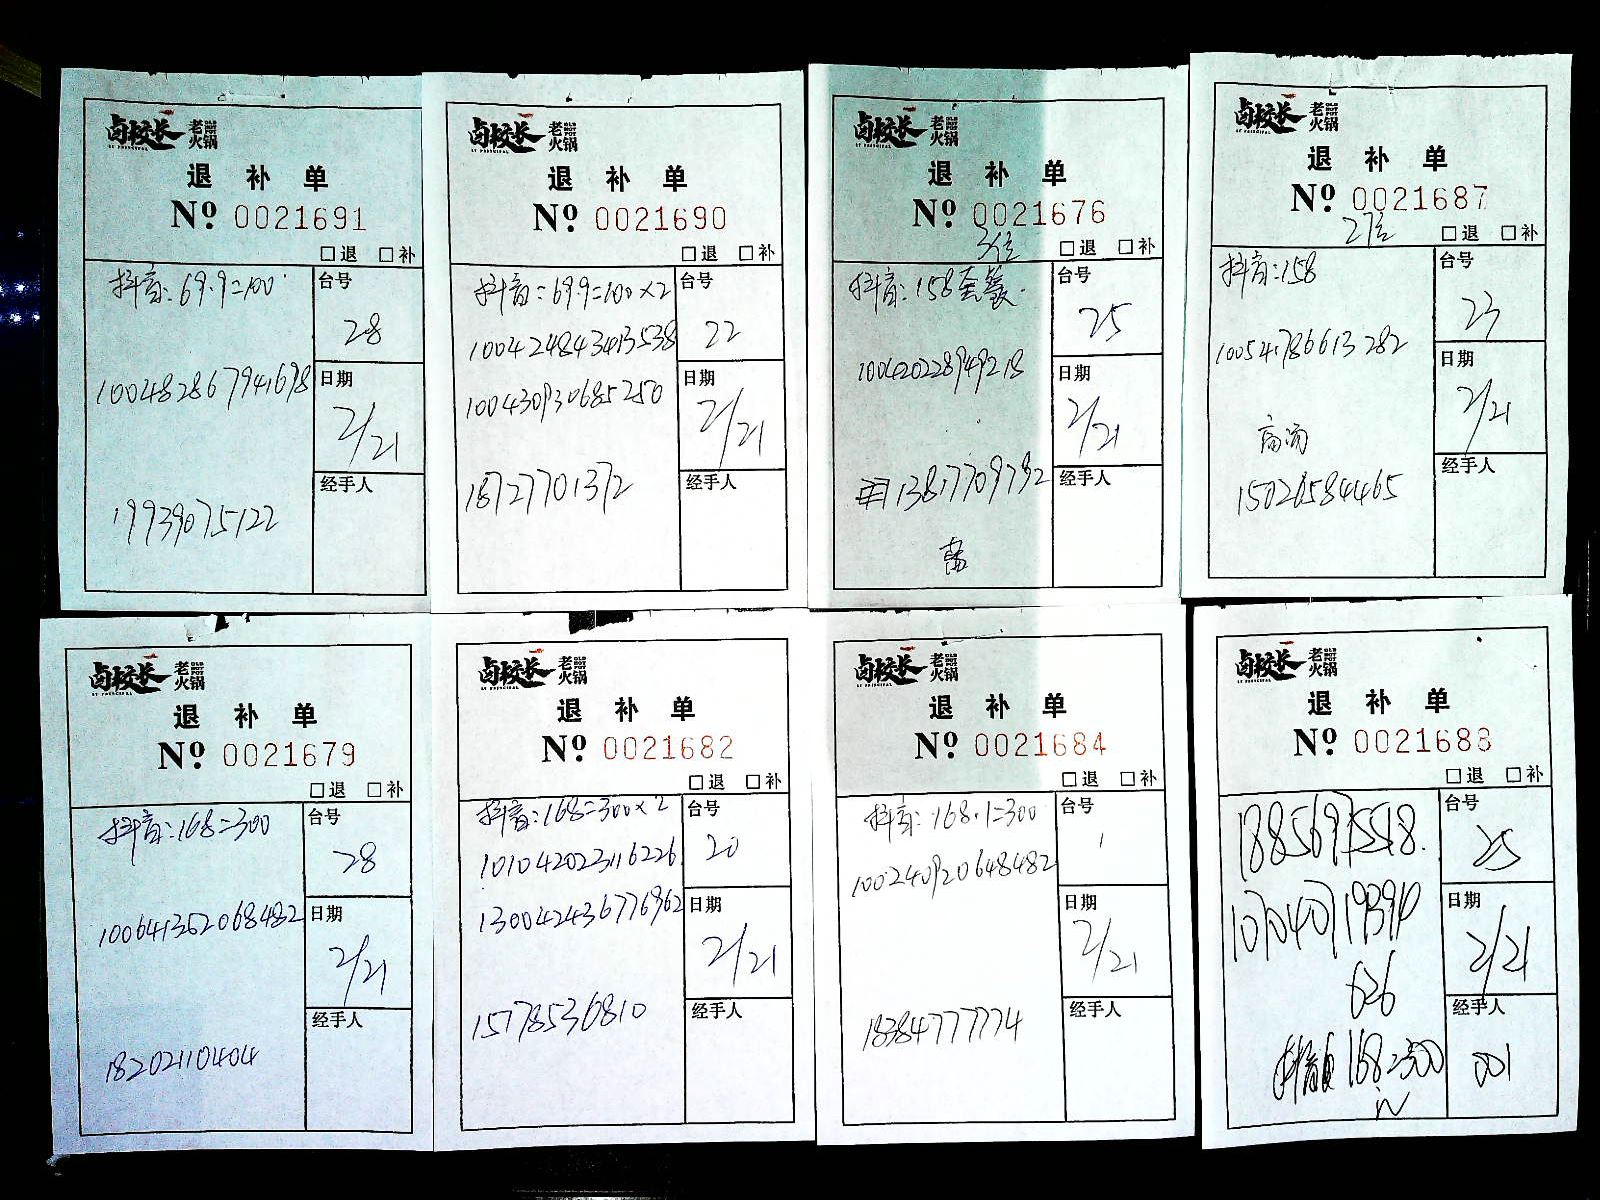 卤校长 老火锅
退补单
№ 0021691
□退 □补
抖音:69.9=100
台号
28
100482867941698
日期
2/21
经手人
19939075122
卤校长 老火锅
退补单
№ 0021690
□退 □补
抖音:69.9=100×2
台号
22
100424843413538
100430930685250
日期
2/21
经手人
18727701372
卤校长 老火锅
退补单
№ 0021676
□退 □补
抖音:158套餐
台号
25
100420228949218
日期
2/21
经手人
13817709792
卤校长 老火锅
退补单
№ 0021687
□退 □补
抖音:158
台号
23
100541786613282
日期
2/21
经手人
15026584465
卤校长 老火锅
退补单
№ 0021679
□退 □补
抖音:168=300
台号
28
100641362068482
日期
2/21
经手人
18202110404
卤校长 老火锅
退补单
№ 0021682
□退 □补
抖音:168=300×2
台号
20
101042023116226
130042436776962
日期
2/21
经手人
15178536810
卤校长 老火锅
退补单
№ 0021684
□退 □补
抖音:168.1=300
台号
1
100240920648482
日期
2/21
经手人
18384777774
卤校长 老火锅
退补单
№ 0021688
□退 □补
台号
25
日期
2/21
626
经手人
抖音 168=300
001